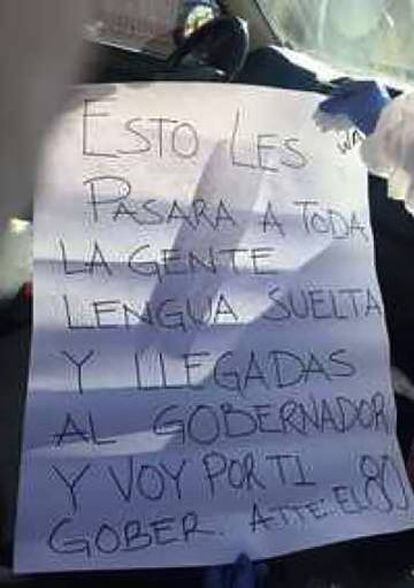 ESTO LES
PASARA A TODA
LA GENTE
LENGUA SUELTA
Y LLEGADAS
AL GOBERNADOR
Y VOY POR TI
GOBER. ATTE: EL 80